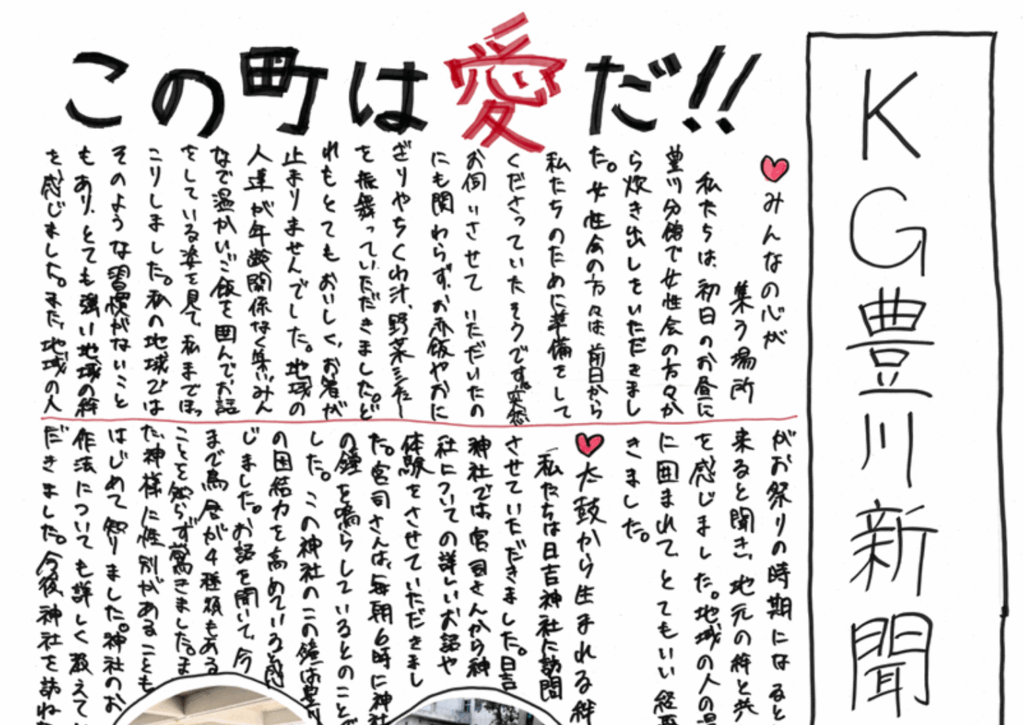 KG豊川新聞
この町は愛だ!!
みんなの心が
集う場所
私たちは、初日のお昼に
豊川分館で女性会の方々か
ら炊き出しをいただきまし
た。女性会の方々は前日から
私たちのために準備をして
くださっていたそうです。突然
お伺いさせていただいたの
にも関わらず、お赤飯やおに
ぎりやちくわ汁、野菜ジュー
を振舞っていただきました。ど
れもとてもおいしく、お箸が
止まりませんでした。地域の
人達が年齢関係なく集い、みん
なで温かいご飯を囲んでお話
をしている姿を見て、私までほっ
こりしました。私の地域では
そのような習慣がないこと
もあり、とても強い地域の絆
を感じました。また、地域の人
がお祭りの時期になると
来ると聞き、地元の絆と共
を感じました。地域の人の温
に囲まれて、とてもいい経
きました。
太鼓から生まれる絆
私たちは日吉神社に訪問
させていただきました。日吉
神社では、宮司さんから神
社についての詳しいお話や
体験をさせていただきまし
た。宮司さんは、毎朝6時に神社
の鐘を鳴らしているとのことで
した。この神社のこの鐘は豊
の団結力を高めていると感
じました。お話を聞いて、今
まで鳥居が4種類もある
ことを知らず驚きました。ま
た、神様に性別があることも
はじめて知りました。神社のお
作法についても詳しく教えて
だきました。今後神社を訪ね